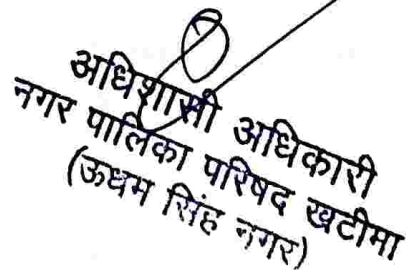 अधिशासी अधिकारी
नगर पालिका परिषद खटीमा
(ऊधम सिंह नगर)